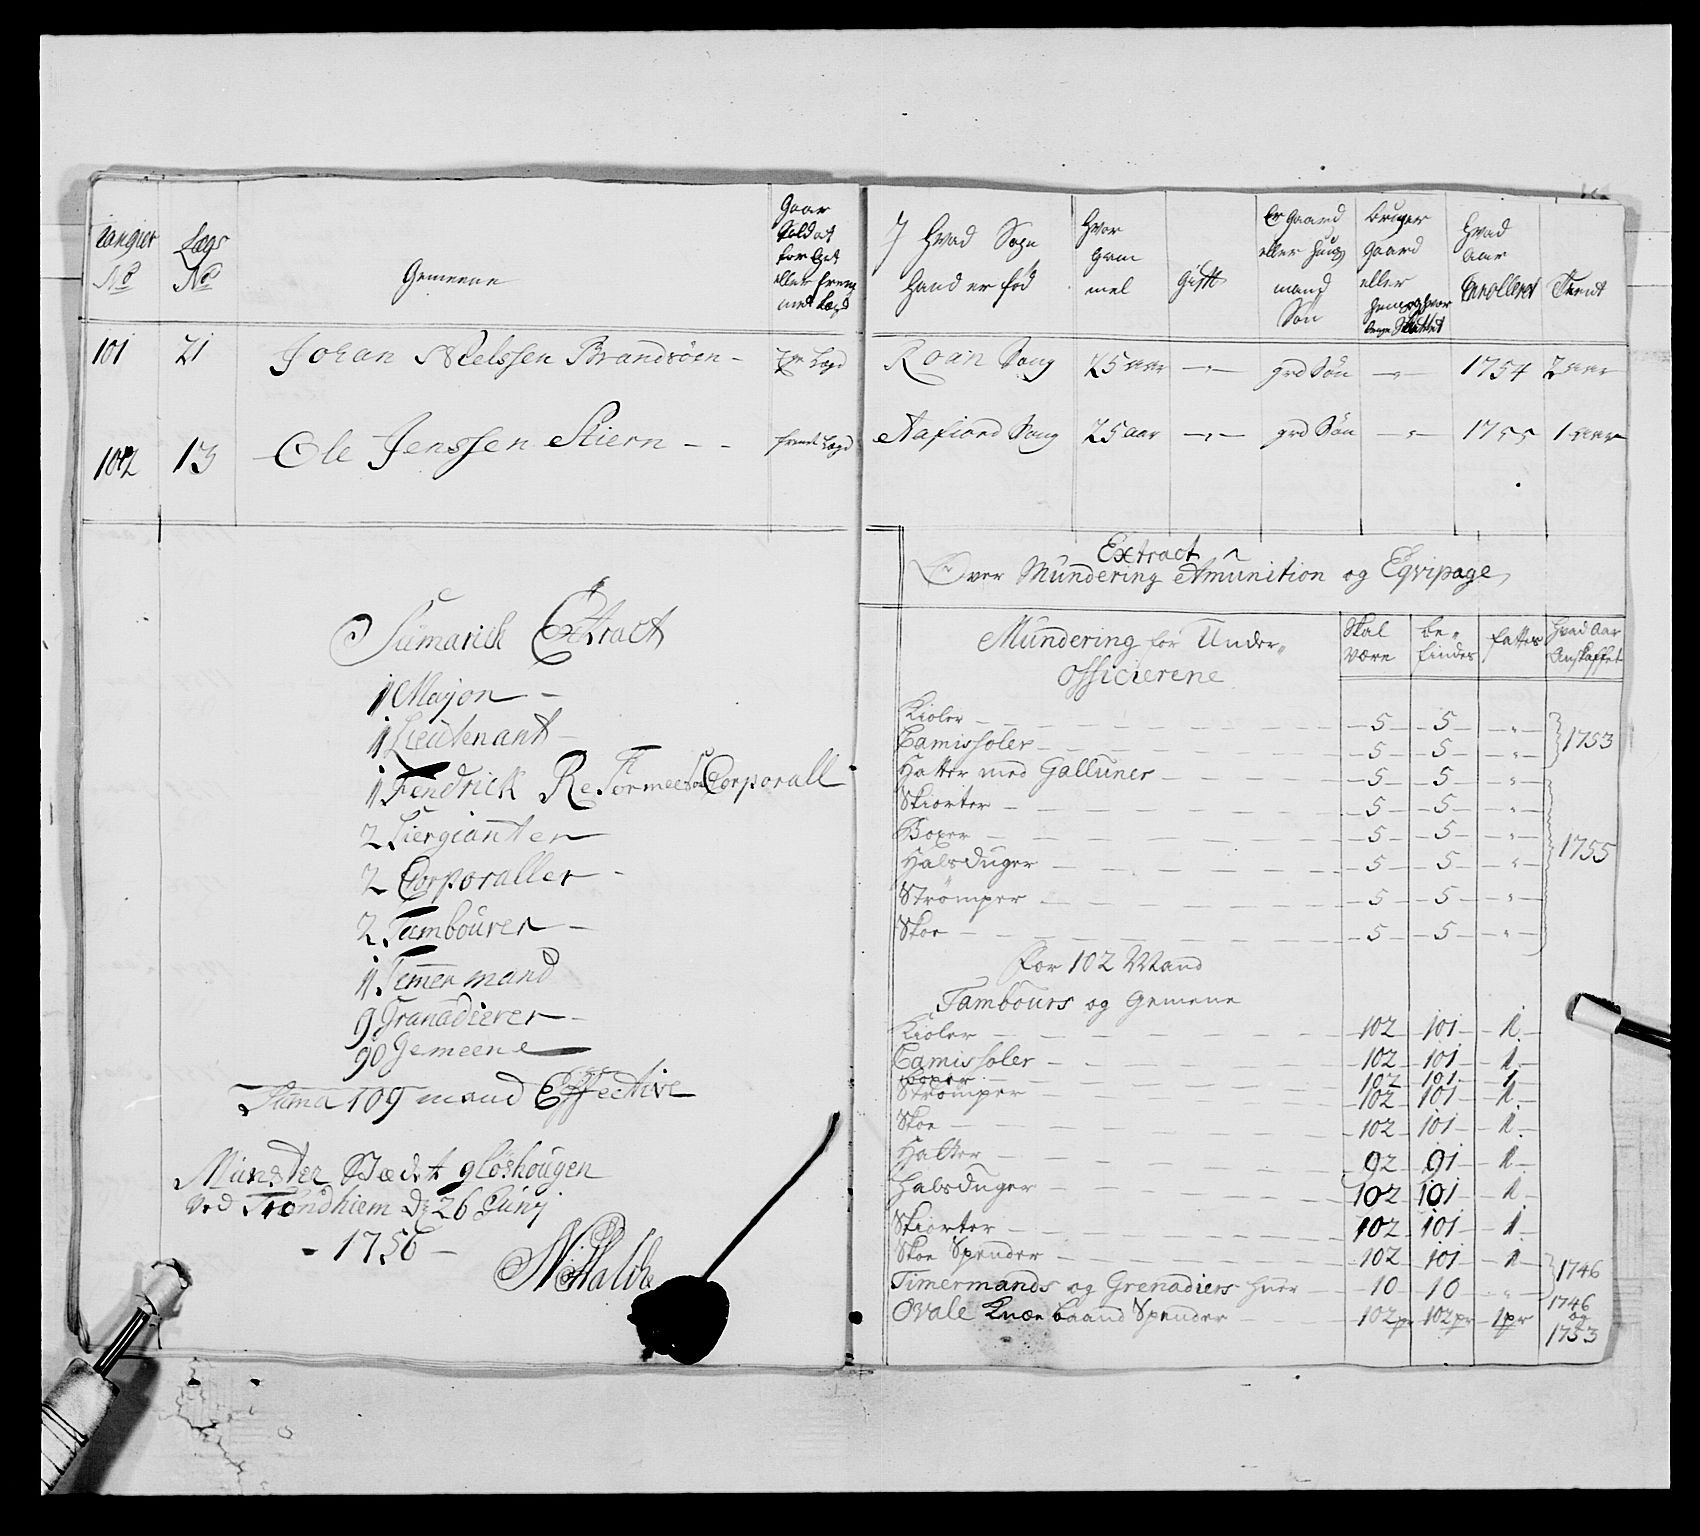 Rangret No
Lægs No
Gemeene
Gaar Soldat for Eget eller fremmet Lægd
J Hvad Sogn Hand er fød
Hvor gam mel
Gift
Er Gaard eller Huus mand Søn
Bruger gaard eller
Hvad Aar Enrolleret
Tient
101 21 Johan Nielssen Brandsöen - Egn Lægd Roan Song 25 aar -"- grd Søn -"- 1754 2 aar
102 13 Ole Jenssen Stiern - - fremt Lægd Aafiord Song 25 aar -"- grd Søn -"- 1755 1 aar
Sumarisk Extract
1 Major -
1 Lieutenant -
1 Fendrick Reformeet Corporall
2 Siergianter
2 Corporaller -
2 Tambourer -
1 Temmermand
9 Granadierer -
90 Gemeene
Suma 109 mand Effective
Mùnster Stædet gløshougen
ved Trondhiem d: 26 Junj
- 1756 -
Extract
Over Mundering Amunition og Eqvipage
Mundering for Under-
officierene
Skal være
be- findes
fattes
Hvad Aar Anskaffet
Kioler - 5 - 5 - " - 1753
Camissoler - 5 - 5 - " -
Hatter med Galluner - 5 - 5 - " -
Skiorter - 5 - 5 - " -
Boxer - 5 - 5 - " - 1755
Halsduger - 5 - 5 - " -
Strømper - 5 - 5 - " -
Skoe - 5 - 5 - " -
For 102 Mand
Tambours og Gemene
Kioler - 102 - 101 - 1 -
Camissoler - 102 - 101 - 1 -
Boxer - 102 - 101 - 1
Strømper - 102 - 101 - 1 -
Skoe - 102 - 101 - 1 -
Hatter - 92 91 - 1 -
Halsduger - 102 101 - 1 -
Skiorter - 102 101 - 1 -
Skoe Spender - 102 101 - 1 - 1746
Timermands og Grenadiers Huer - 10 10 - " -
Ovale Knæe baand Spender - 102 pr 102 pr 1 pr 1746 og 1753